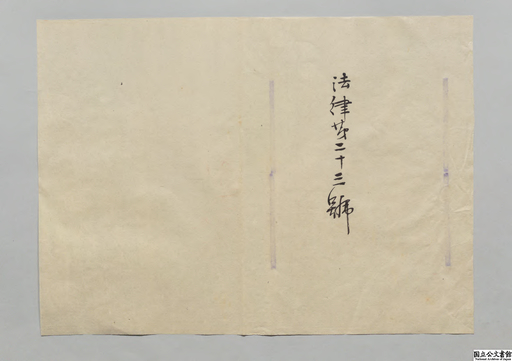 法律第二十三號
国立公文書館
National Archives of Japan